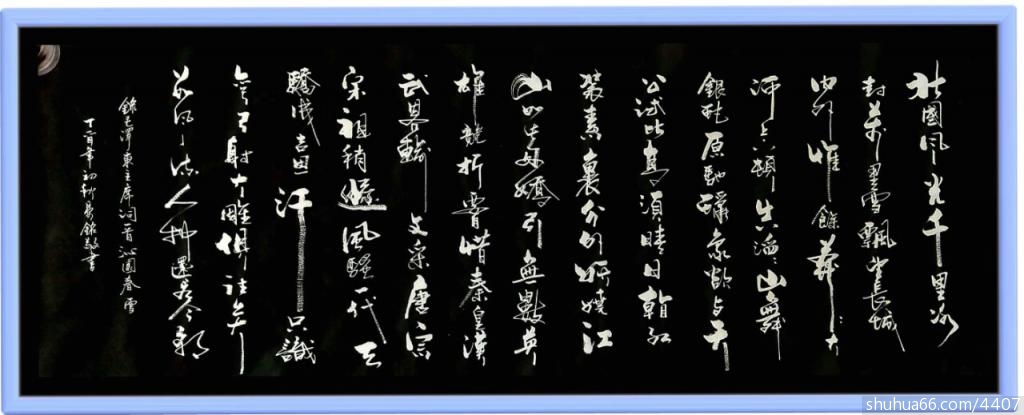 北國風光千里冰
封萬里雪飄望長城
内外惟餘莽〻大
河上下頓失滔〻山舞
銀蛇原馳蠟象欲与天
公試比高須晴日看紅
裝素裹分外妖嬈江
山如此多嬌引無數英
雄競折腰惜秦皇漢
武畧輸文采唐宗
宋祖稍遜風騷一代天
驕成吉思汗只識
彎弓射大雕俱往矣
數風流人物還看今朝
錄毛澤東主席詞一首沁園春雪
年初秋書
shuhua66.com/4407